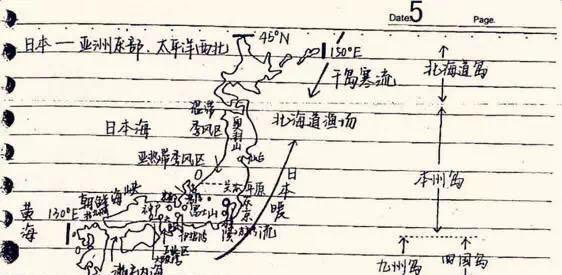 Date: 5 Page.
日本 — 亚洲东部、太平洋西北
45°N
150°E
千岛寒流
北海道岛
温带
季风区
奥羽山
北海道渔场
日本海
仙台
亚热带季风区
本州岛
关东平原
日本暖流
朝鲜海峡
神户
富士山
东京
横滨
黄海
130°E
濑户内海
九州岛
四国岛